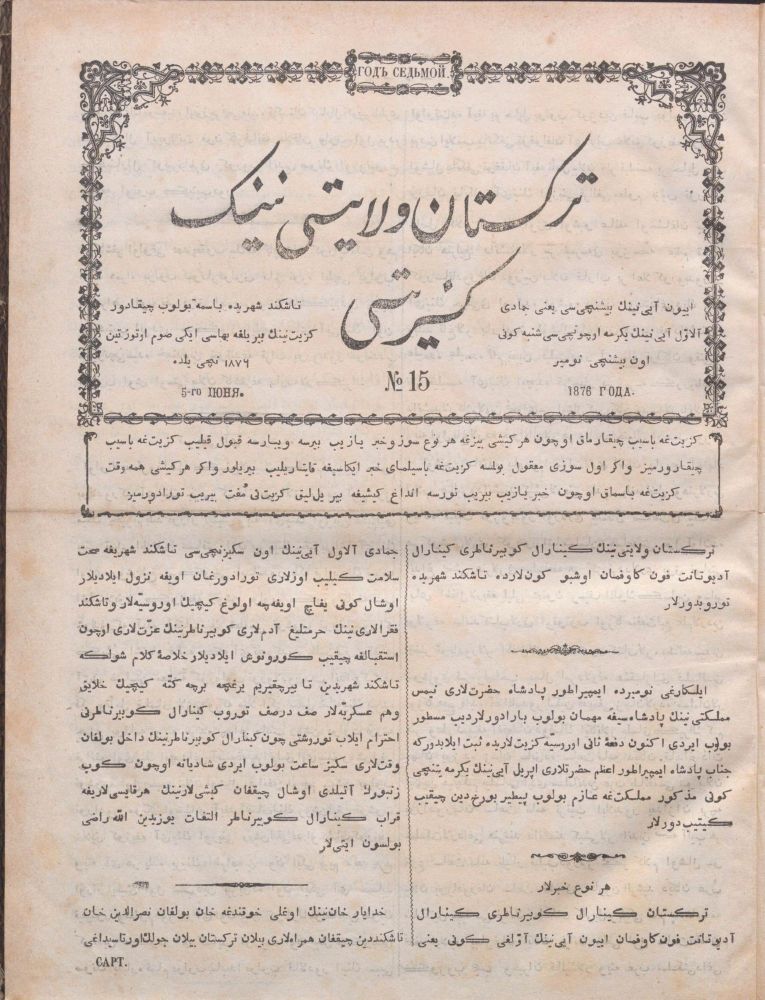 ГОДЪ СЕДЬМОЙ.
ترکستان ولایتی نینک
کزیتی
اییون آیی نینك بیشنچی سی یعنی جمادی
الاوّل آیی نینك یکرمه اوچونچی سی شنبه کونی
اون بیشنچی نومیر
تاشکند شهریده باسمه بولوب چیقادور
کزیت نینك بیر یلقه بهاسی ایکی صوم اوتوز تین
۱۸۷۶ نچی یلده
№ 15
5-го ІЮНЯ.
1876 ГОДА.
کزیت غه باسیب چیقارماق اوچون هر کیشی بیزغه هر نوع سوز و خبر یازیب بیرسه و یبارسه قبول قیلیب کزیت غه باسیب
چیقارورمیز واکر اول سوزی معقول بولسه کزیت غه باسیلمای خبر ایکاسیغه قایتاریلیب بیریلور واکر هر کیشی همه وقت
کزیت غه باسماق اوچون خبر یازیب بیریب تورسه انداغ کیشیغه بیر یل لیق کزیت نی مُفت بیریب تورادورمیز
ترکستان ولایتی نینك کینارال کوبیرناطری کینارال
آدیوتانت فون کاوفمان اوشبو کون لارده تاشکند شهریده
توروبدورلار
ایلکارغی نومیرده ایمپیراطور پادشاه حضرت لاری نیمس
مملکتی نینك پادشاه سیغه مهمان بولوب بارادورلار دیب مسطور
بولوب ایردی اکنون دفعهٔ ثانی اوروسیّه کزیت لاریده ثبت ایلابدورکه
جناب پادشاه ایمپیراطور اعظم حضرتلاری اپریل آیی نینك یکرمه یتنچی
کونی مذکور مملکت غه عازم بولوب پیطیر بورخ دین چیقیب
کیتیب دورلار
هر نوع خبرلار
ترکستان کینارال کوبیرناطری کینارال
آدیوتانت فون کاوفمان اییون آیی نینك آزلغی کونی یعنی
جمادی الاول آیی نینك اون سکیزنچی سی تاشکند شهریغه صحت
سلامت کیلیب اوزلاری تورادورغان اویغه نزول ایلادیلار
اوشال کونی یغاچ اویغه چه اولوغ کیچیك اوروسیّه لار و تاشکند
فقرالاری نینك حرمتلیغ آدم لاری کوبیرناطرنینك عزّت لاری اوچون
استقبالغه چیقیب کورونوش ایلادیلار خلاصهٔ کلام شولکه
تاشکند شهریدین تا بیرچقیریم یرغچه برچه کتّه کیچیك خلایق
وهم عسکریّه لار صف درصف توروب کینارال کوبیرناطرنی
احترام ایلاب توروشتی چون کینارال کوبیرناطرنینك داخل بولغان
وقت لاری سکیز ساعت بولوب ایردی شادیانه اوچون کوب
زنبورك آتیلدی اوشال چیققان کیشی لارنینك هرقایسی لاریغه
قراب کینارال کوبیرناطر التفات یوزیدین الله راضی
بولسون ایتی لار
خدایار خان نینك اوغلی خوقندغه خان بولغان نصرالدین خان
تاشکنددین چیققان همراه لاری بیلان ترکستان بیلان جولك اورتاسیداغی
САРТ.